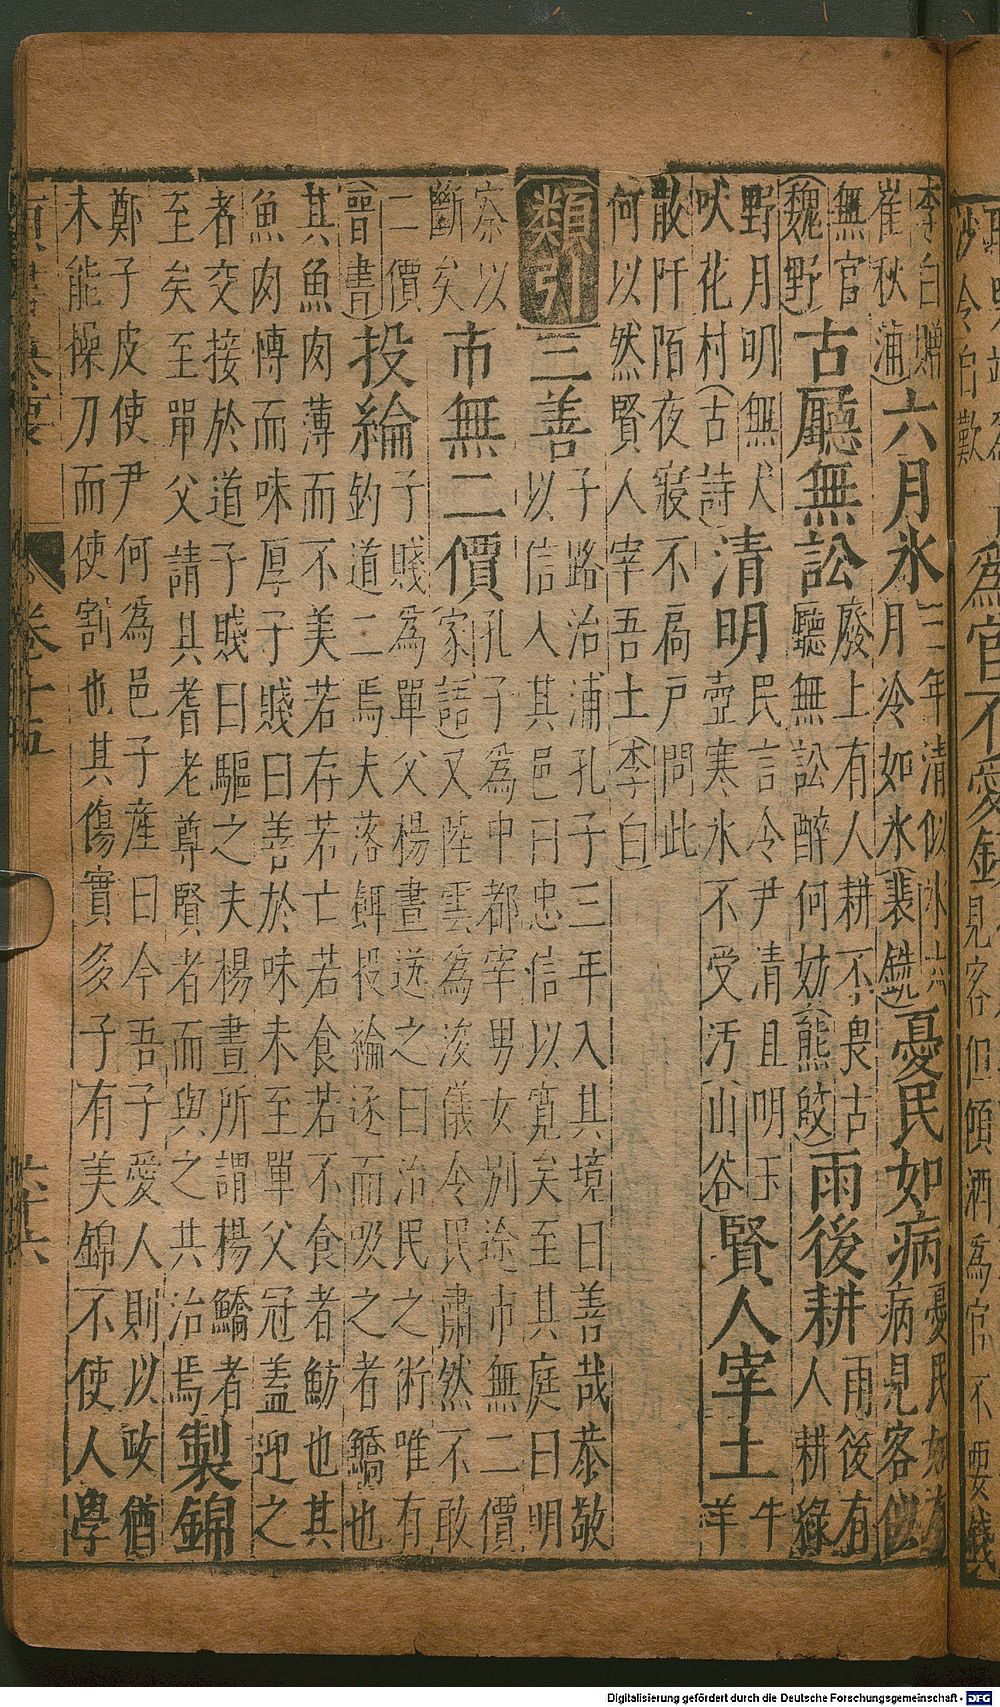 為官不愛錢 見客但傾酒為官不要錢
李白贈
崔秋浦 六月氷 三年清似氷六
月冷如氷(裴銑) 憂民如病 憂民如有
病見客似
無官
(魏野) 古廳無訟 廢上有人耕不畏古
聽無訟醉何妨(熊皎) 雨後耕 雨後有
人耕綠
野月明無犬
吠花村(古詩) 清明 民言令尹清且明玉
壺寒氷不受汚(山谷) 賢人宰土 牛
羊
散阡陌夜寢不扃戶問此
何以然賢人宰吾土(李白)
類引 三善 子路治浦孔子三年入其境曰善哉恭敬
以信人其邑曰忠信以寬矣至其庭曰明
察以
斷矣 市無二價 孔子為中都宰男女別途市無二價
(家語)又陸雲為浚儀令民肅然不敢
二價
(晉書) 投綸 子賤為單父楊晝送之曰治民之術唯有
釣道二焉夫落餌投綸逐而吸之者鱎也
其魚肉薄而不美若存若亡若食若不食者魴也其
魚肉慱而味厚子賤曰善於味未至單父冠蓋迎之
者交接於道子賤曰驅之夫楊晝所謂楊鱎者
至矣至單父請其耆老尊賢者而與之共治焉 製錦
鄭子皮使尹何為邑子產曰今吾子愛人則以政猶
未能操刀而使割也其傷實多子有美錦不使人學
卷十五
Digitalisierung gefördert durch die Deutsche Forschungsgemeinschaft - DFG